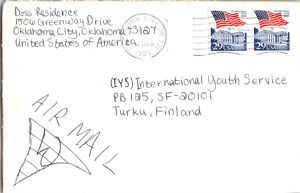 Doss Residence
1506 Greenway Drive
Oklahoma City, Oklahoma 73127
United States of America
29 USA
29 USA
(IYS) International Youth Service
PB 125, SF-20101
Turku, Finland
AIR MAIL